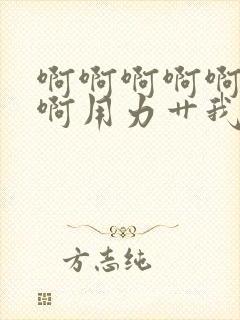 啊啊啊啊啊
啊用力艹我
方志纯